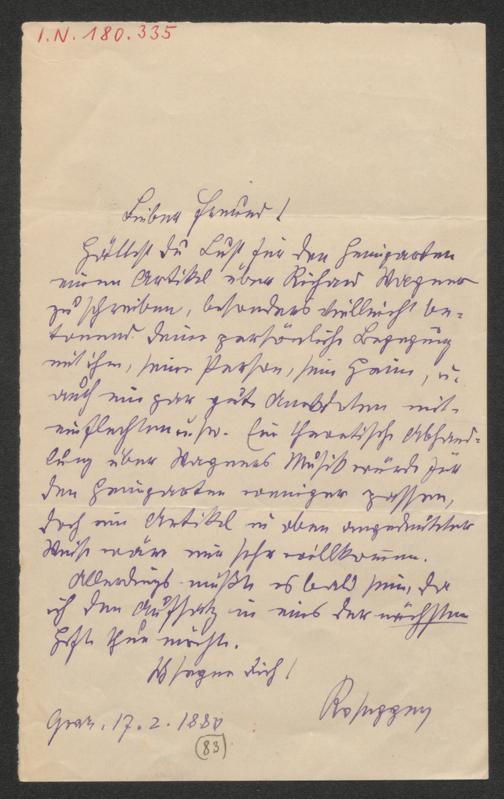 I.N. 180.335
Lieber Freund!
Hättest du Lust für den Heimgarten
einen Artikel über Richard Wagner
zu schreiben, besonders vielleicht be-
tonend deine persönliche Begegnung
mit ihm, seine Person, sein Heim, u.
auch ein par gute Anekdoten mit-
einflechten u.s.w. Eine theoretische Abhand-
lung über Wagners Musik würde für
den Heimgarten weniger passen,
doch ein Artikel in oben angedeuteter
Weise wäre mir sehr willkommen.
Allerdings müßte es bald sein, da
ich den Aufsatz in eins der nächsten
Hefte thun möchte.
dich!
Rosegger
Graz, 17. 2. 188
(83)